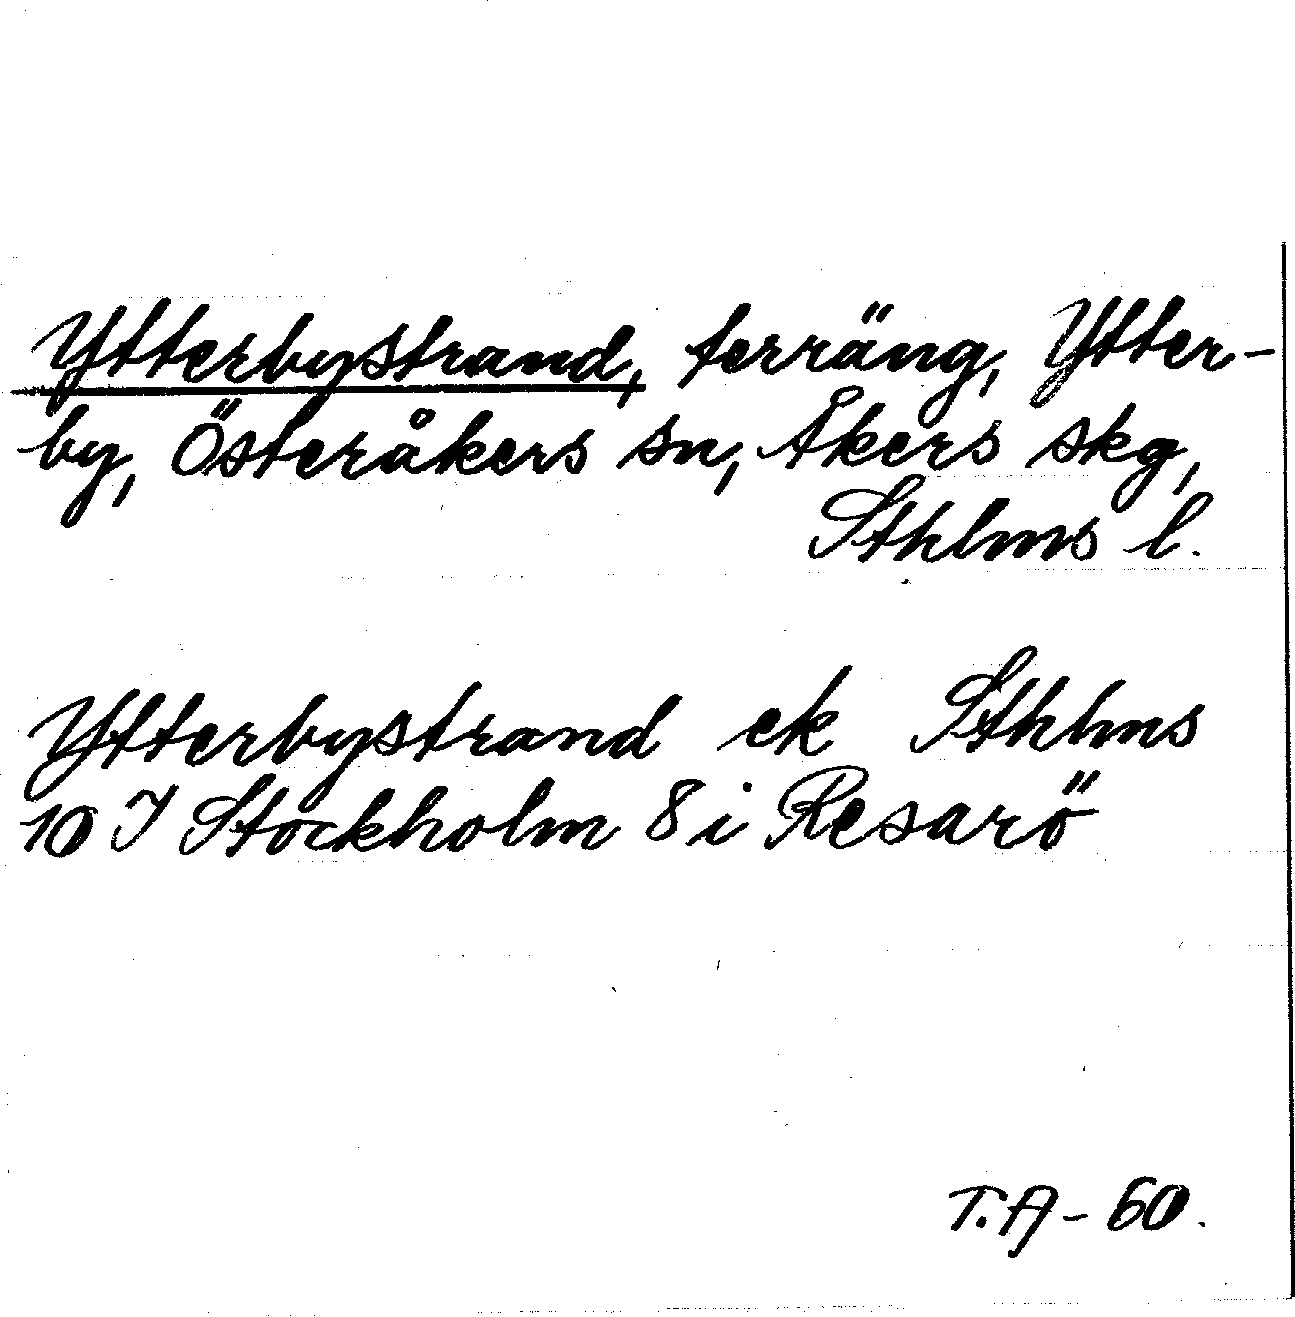 Ytterbystrand, terräng, Ytter-
by, Österåkers sn, Åkers skg,
Sthlms l.
Ytterbystrand ek Sthlms
10 I Stockholm 8 i Resarö
T.A-60.